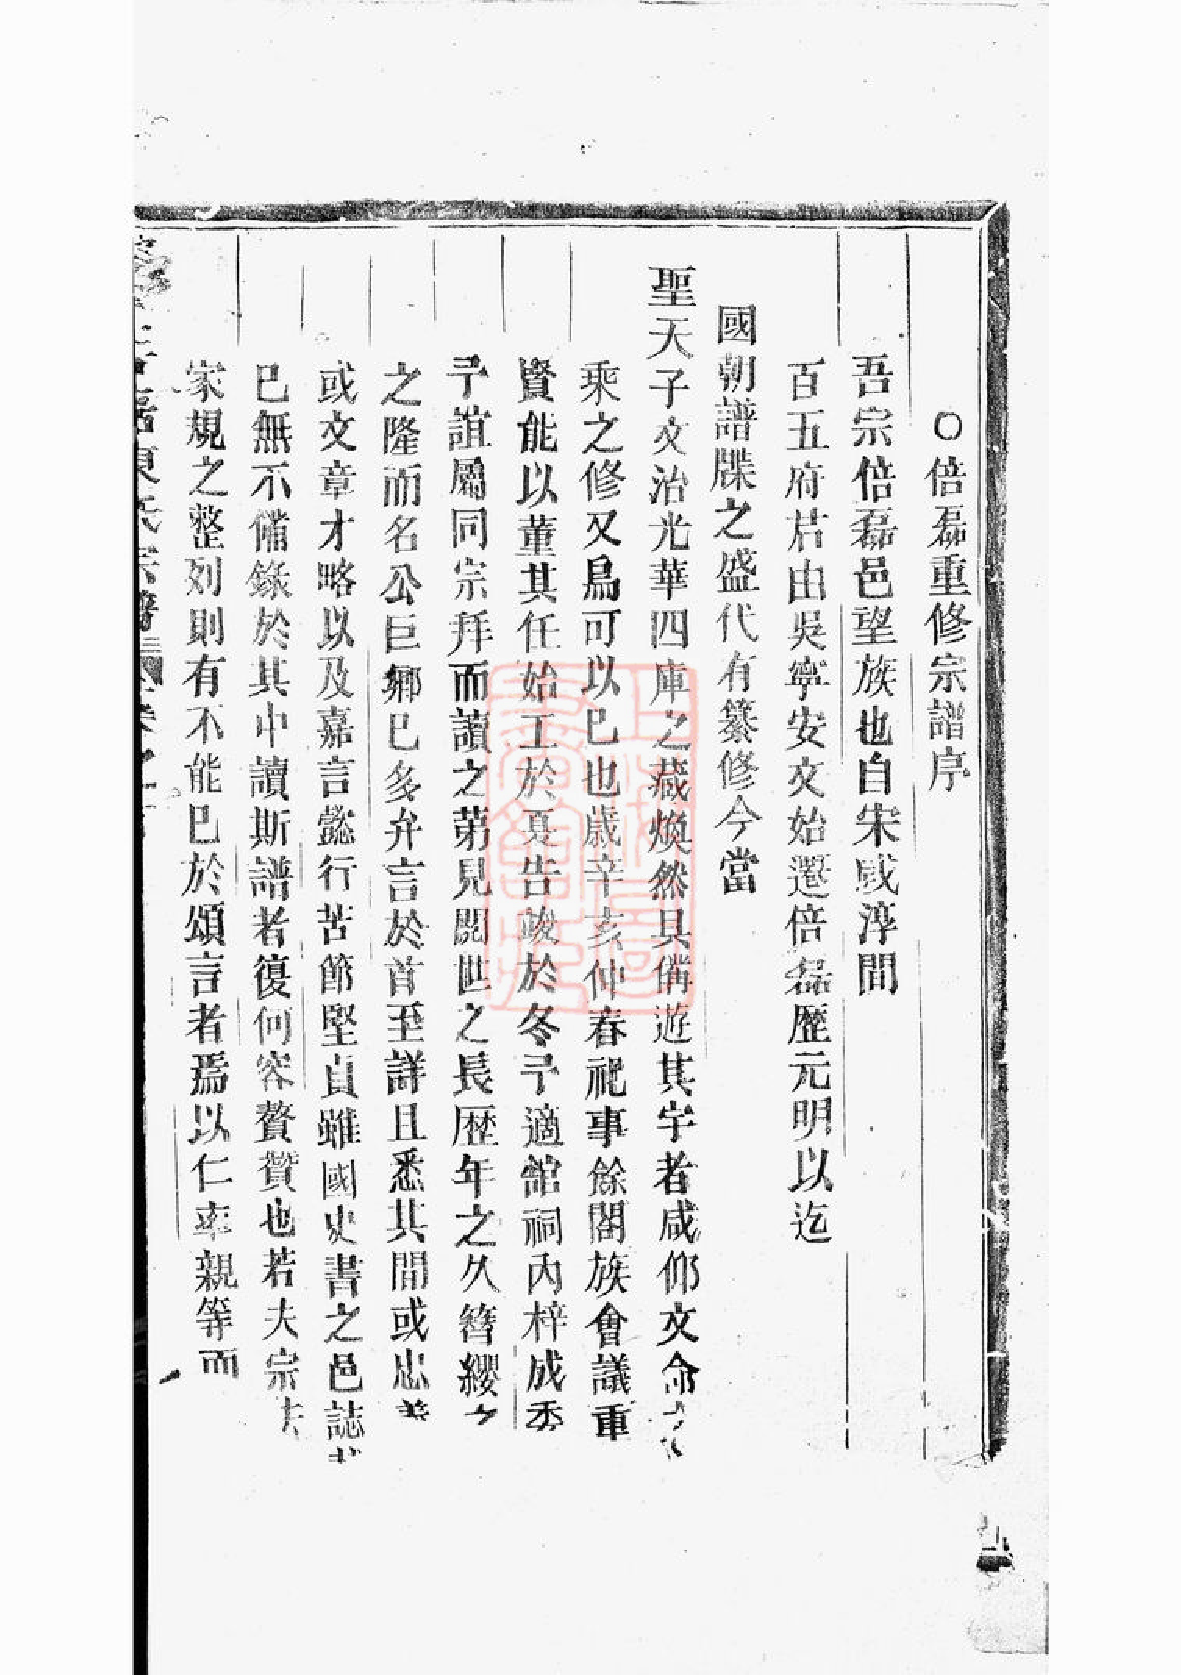 〇倍磊重修宗譜序
吾宗倍磊邑望族也自宋咸淳間
百五府君由吳寧安文始遷倍磊歷元明以迄
國朝譜牒之盛代有纂修今當
聖天子文治光華四庫之藏煥然具備遊其宇者咸仰文命
乘之修又烏可以已也歲辛亥仲春祀事餘閣族會議重
賢能以董其任始工於夏告竣於冬予適館祠內梓成
予誼屬同宗拜而讀之第見閱世之長歷年之久簪纓之
之隆而名公巨鄉已多弁言於首至詳且悉其間或忠義
或文章才略以及嘉言懿行苦節堅貞雖國史書之邑誌
已無不備錄於其中讀斯譜者復何容贅贊也若夫宗法
家規之整列則有不能已於頌言者焉以仁率親等而
東氏宗譜
上海圖書館藏